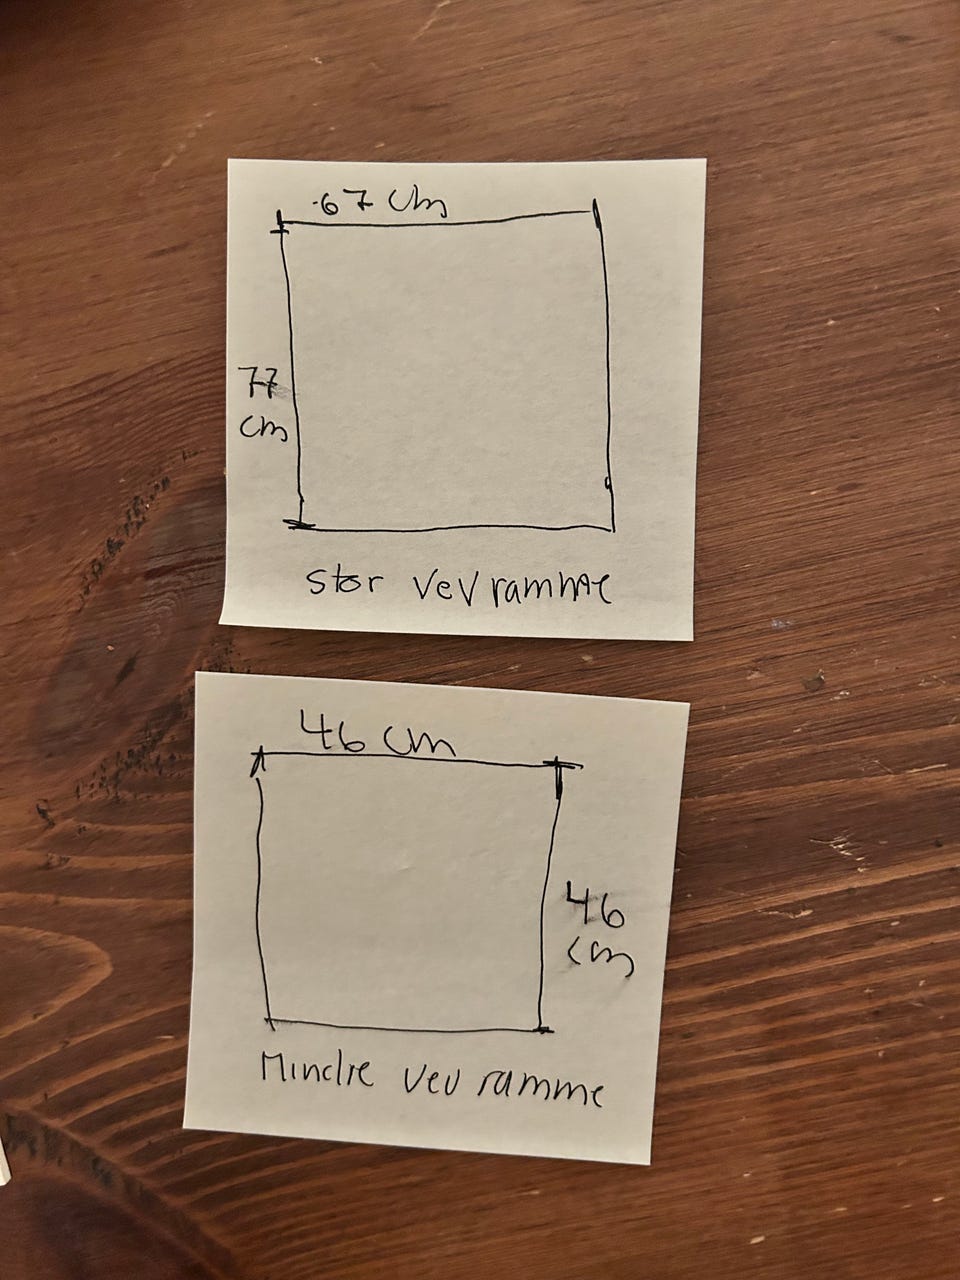 67 cm
77
cm
stor vevramme
46 cm
46
cm
Mindre vev ramme